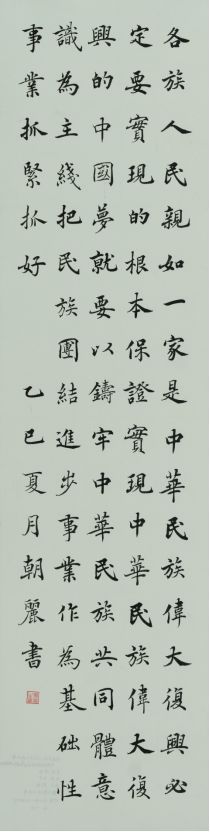 各族人民親如一家是中華民族偉大復興必
定要實現的根本保證實現中華民族偉大復
興的中國夢就要以鑄牢中華民族共同體意
識為主綫把民族團結進步事業作為基础性
事業抓緊抓好
乙巳夏月朝麗書